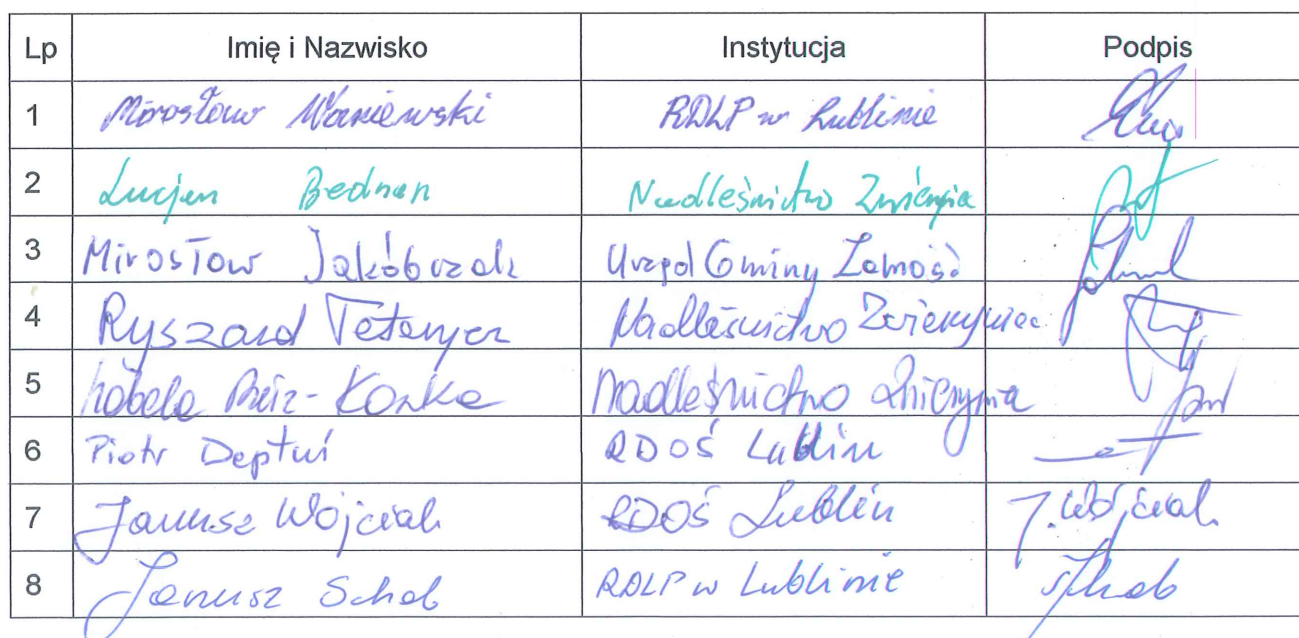 Lp Imię i Nazwisko Instytucja Podpis
1 Mirosław Waniewski RDLP w Lublinie
2 Lucjan Bednarz Nadleśnictwo Zwierzyniec
3 Mirosław Jakóbczak Urząd Gminy Zamość
4 Ryszard Nadleśnictwo Zwierzyniec
5 Izabela Nadleśnictwo Zwierzyniec
6 Piotr Deptuś RDOŚ Lublin
7 Janusz Wójciak RDOŚ Lublin J. Wójciak
8 Janusz Schab RDLP w Lublinie Schab